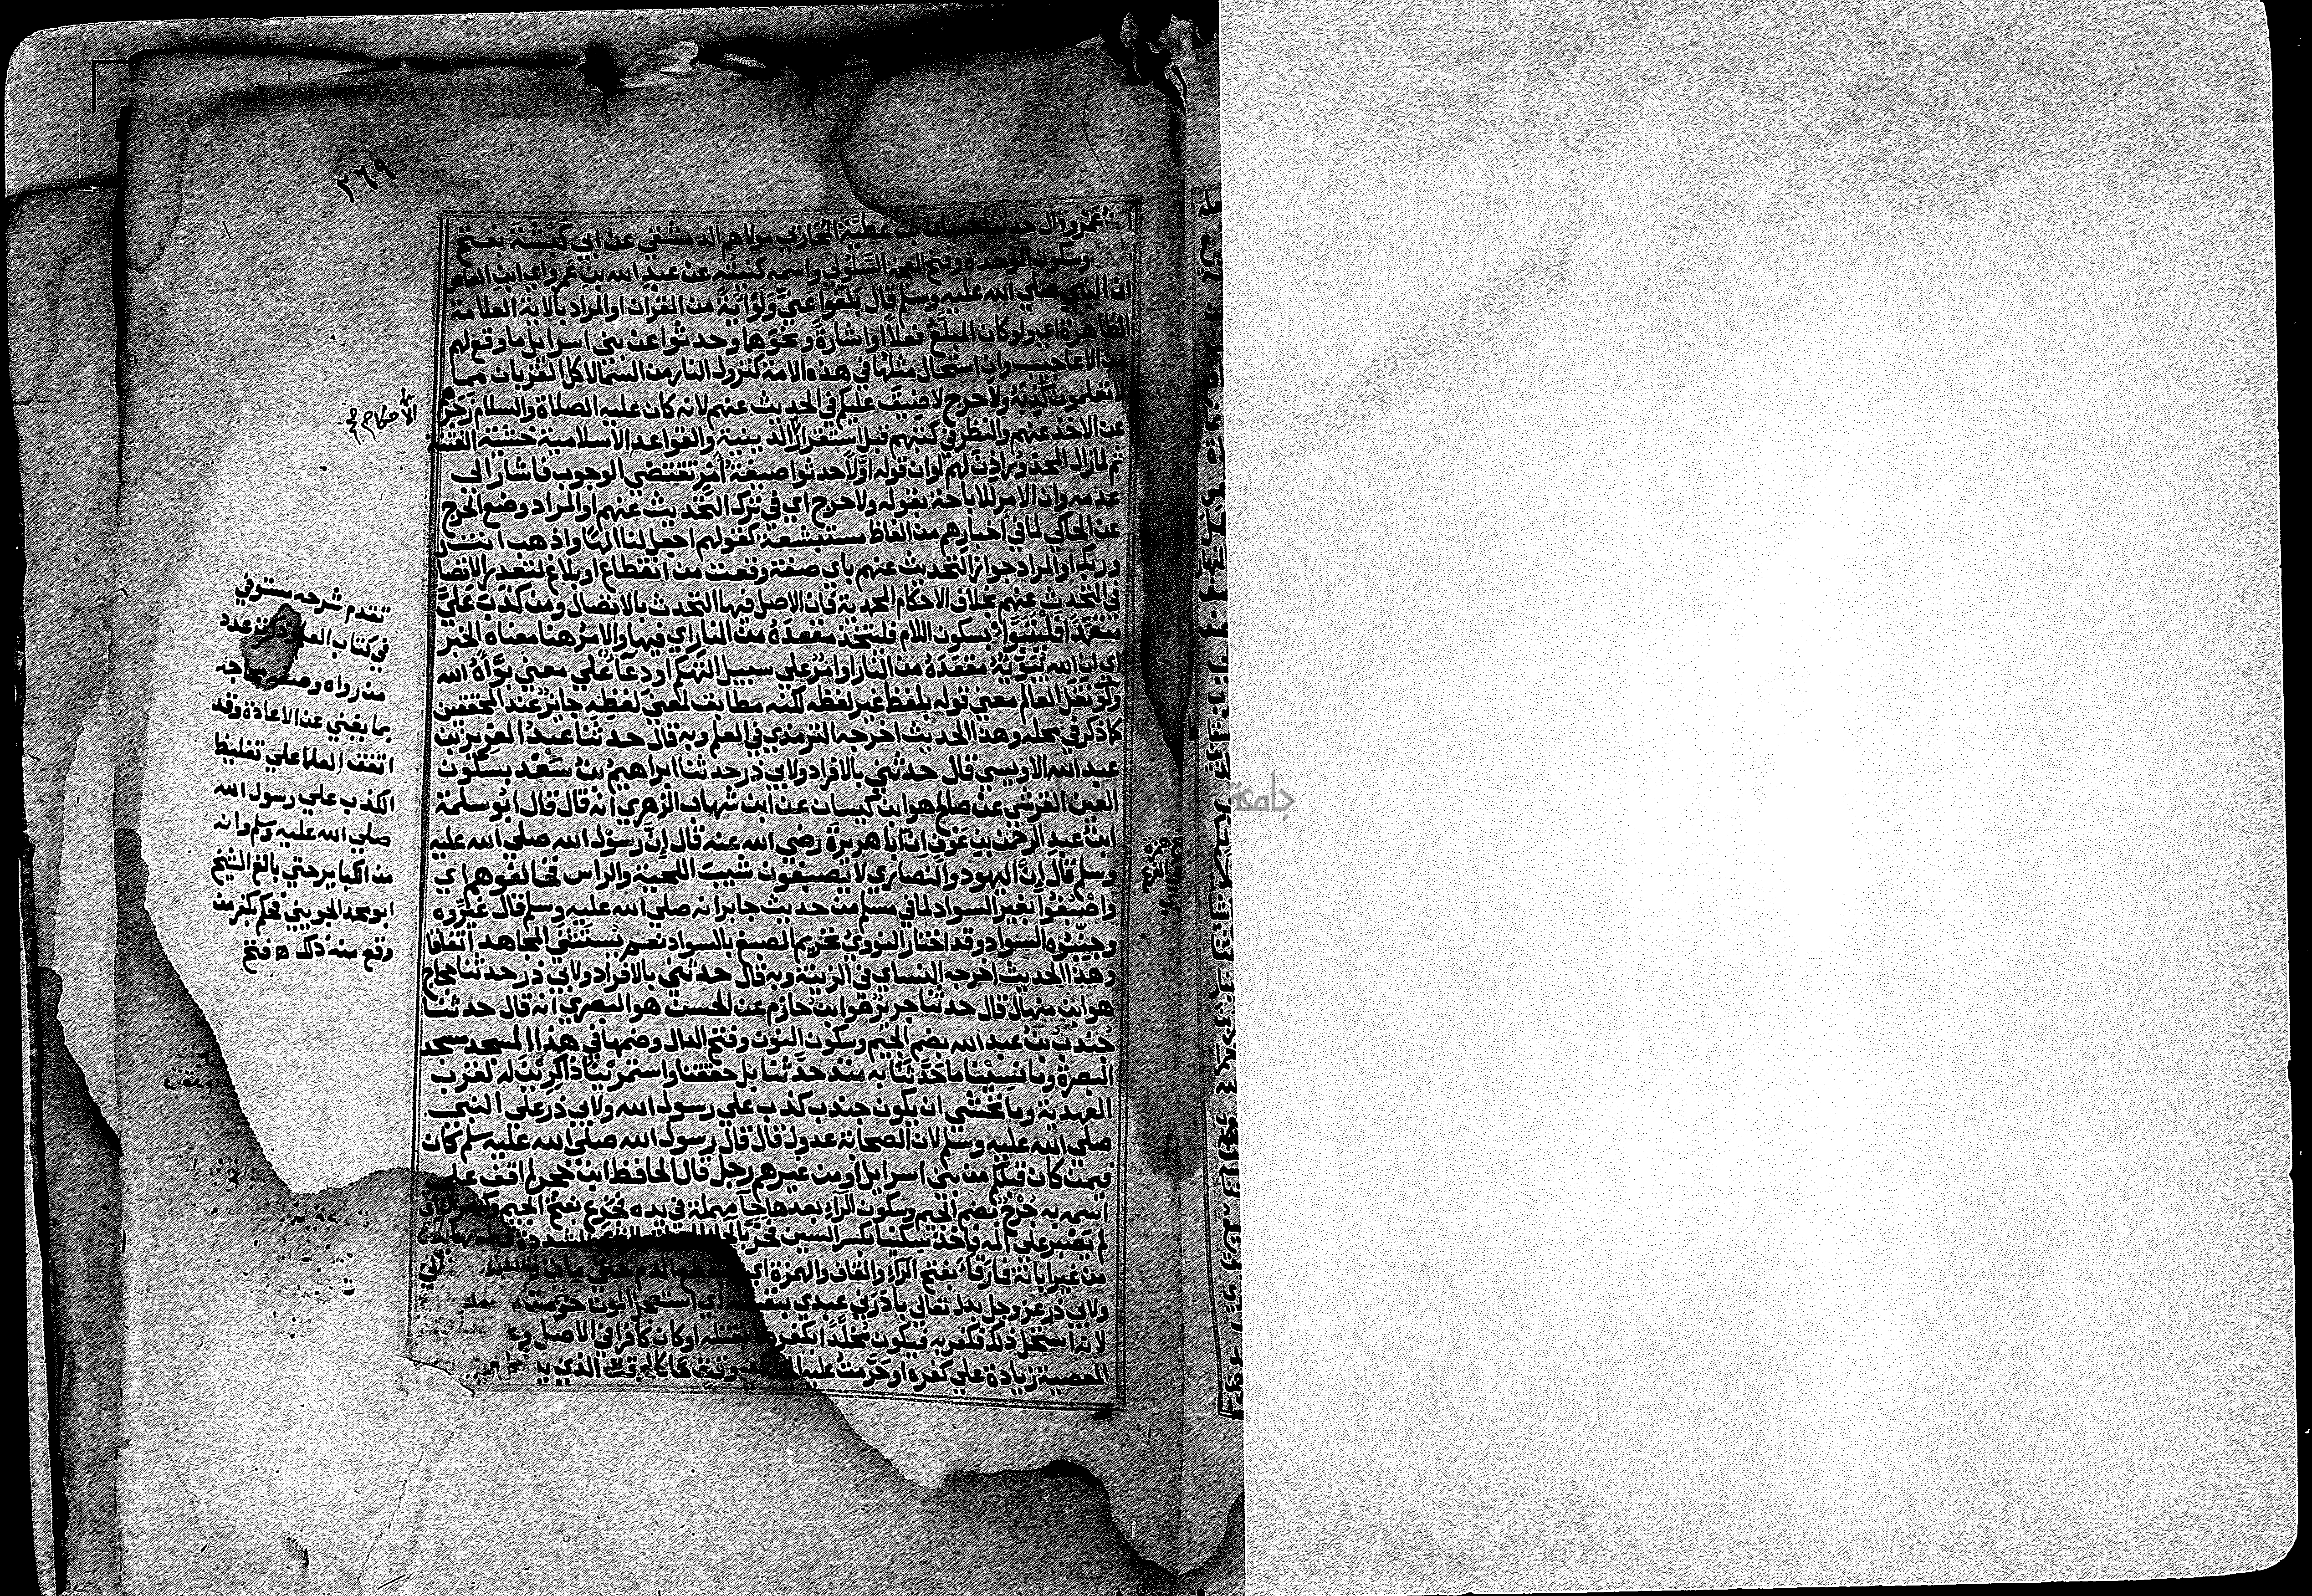 ٢٦٩
ابن عمرو قال حدثنا حسان بن عطية المحاربي مولاهم الدمشقي عن ابي كبشة بفتح
وسكون الموحدة وفتح المعجمة السلولي واسمه كنيته عن عبد الله بن عمرو اي ابن العاص
ان النبي صلي الله عليه وسلم قال بلغوا عني ولو اية من القران او المراد بالاية العلامة
الظاهرة اي ولو كان المبلغ فعلا او اشارة ونحوها وحدثوا عن بني اسرايل ما وقع لهم
من الاعاجيب وان استحال مثلها في هذه الامة كنزول النار من السما لاكل القربان مما
لا تعلمون كذبه ولا حرج لا ضيق عليكم في الحديث عنهم لانه كان عليه الصلاة والسلام زجرهم
عن الاخذ عنهم والنظر في كتبهم قبل استقرار الدينية والقواعد الاسلامية خشية الفتنة
ثم لما زال المحذور اذن لهم او ان قوله اولا حدثوا صيغة امر تقتضي الوجوب فاشار الي
عدمه وان الامر للاباحة بقوله ولا حرج اي في ترك التحديث عنهم او المراد رفع الحرج
عن الحاكي لما في اخبارهم من الفاظ مستبشعة كقولهم اجعل لنا الها واذهب انت
وربك او المراد جواز التحديث عنهم باي صفة وقعت من انقطاع او بلاغ لتعذر الاتصا
في التحديث عنهم بخلاف الاحكام المحمدية فان الاصل فيها التحدث بالاتصال ومن كذب علي
متعمدا فليتبوا بسكون اللام فليتخذ مقعده من النار اي فيها والامر هنا معناه الخبر
اي ان الله يبويه مقعده من النار او امر علي سبيل التهكم او دعا علي معني بواه الله
ولو نقل العالم معني قوله بلفظ غير لفظه لكنه مطابق لمعني لفظه جايز عند المحققين
كما ذكر في محله وهذا الحديث اخرجه الترمذي في العلم وبه قال حدثنا عبد العزيز بن
عبد الله الاويسي قال حدثني بالافراد ولابي ذر حدثنا ابراهيم بن سعد بسكون
العين القرشي عن صالح هو ابن كيسان عن ابن شهاب الزهري انه قال قال ابو سلمة
ابن عبد الرحمن بن عوف ان ابا هريرة رضي الله عنه قال ان رسول الله صلي الله عليه
وسلم قال ان اليهود والنصاري لا يصبغون شيب اللحية والراس فخالفوهم اي
واصبغوا بغير السواد لما في مسلم من حديث جابر انه صلي الله عليه وسلم قال غيروه
وجنبوه السواد وقد اختار النووي تحريم الصبغ بالسواد نعم يستثني المجاهد اتفاقا
وهذا الحديث اخرجه النساي في الزينة وبه قال حدثني بالافراد ولابي ذر حدثنا حجاج
هو ابن منهال قال حدثنا جرير هو ابن حازم عن الحسن هو البصري انه قال حدثنا
جندب بن عبد الله بضم الجيم وسكون النون وفتح الدال وضمها في هذا المسجد مسجد
البصرة وما نسينا ما حدثنا به منذ حدثنا بل حققنا واستمرينا ذاكرين له لقرب
العهد به وما نخشي ان يكون جندب كذب علي رسول الله ولابي ذر علي النبي
صلي الله عليه وسلم لان الصحابة عدول قال قال رسول الله صلي الله عليه سلم كان
فيمن كان قبلكم من بني اسرايل او من غيرهم رجل قال الحافظ ابن حجر لم اقف علي
اسمه به جرح بضم الجيم وسكون الراء بعدها حا مهملة في يده فجزع بفتح الجيم وكسر الزاي
لم يصبر علي المه فاخذ سكينا بكسر السين فحز بالحا
من غير ابانة فما رقا بفتح الراء والقاف والهمزة اي الدم حتي مات
ولابي ذر عز وجل بدل تعالي بادرني عبدي بنفسه اي استعجل الموت حرمت
لانه استحل ذلك فكفر به فيكون مخلدا بكفره لا بقتله او كان كافرا في الاصل
المعصية زيادة علي كفره او حرمت عليه الوقت الذي
الاحكام صح
تقدم شرحه مستوفي
في كتاب العلم عدد
من رواه وصفة مخارجه
بما يغني عن الاعادة وقد
اتفق العلما علي تغليظ
الكذب علي رسول الله
صلي الله عليه وسلم وانه
من الكباير حتي بالغ الشيخ
ابو محمد الجويني فحكم بكفر من
وقع منه ذلك ه فتح